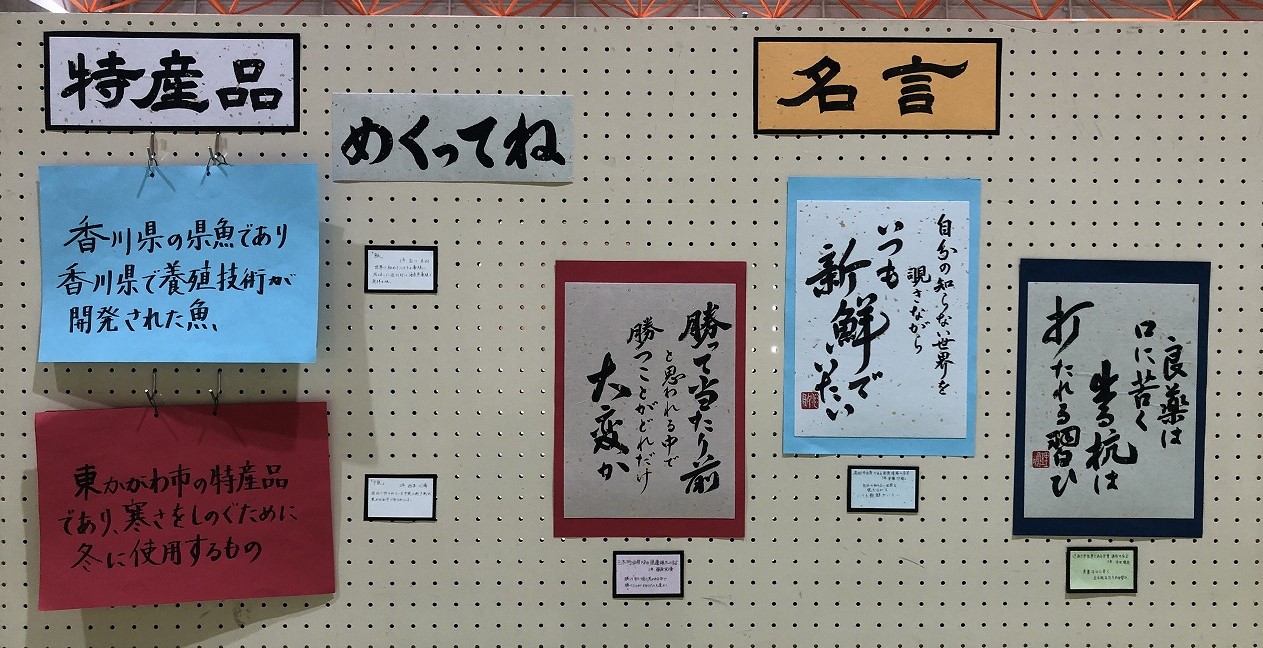 特産品
めくってね
香川県の県魚であり
香川県で養殖技術が
開発された魚
東かがわ市の特産品
であり、寒さをしのぐために
冬に使用するもの
名言
勝って当たり前
と思われる中で
勝つことがどれだけ
大変か
自分の知らない世界を
覗きながら
いつも
新鮮でいたい
良薬は
口に苦く
出る杭は
打たれる習ひ